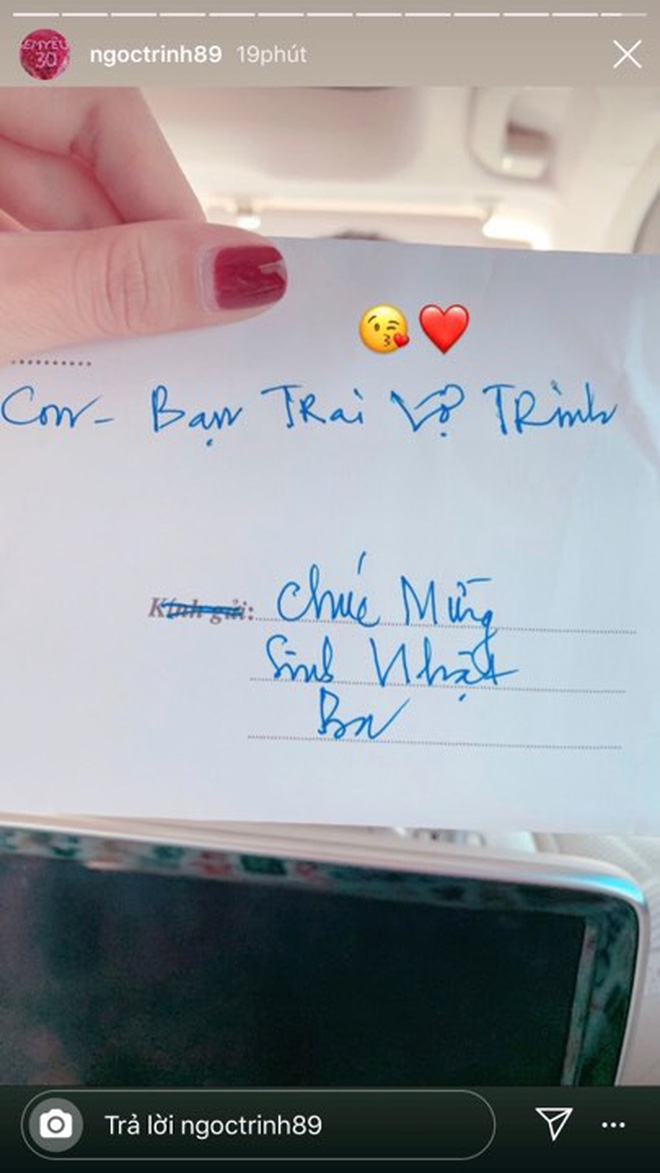 EMYÊU
30
ngoctrinh89 19phút
Con - Bạn TRai Vợ TRinh
Kính gửi: Chúc Mừng
Sinh Nhật
Ba
Trả lời ngoctrinh89